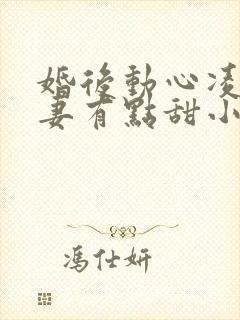 婚後動心凌
妻有點甜小
馮仕妍